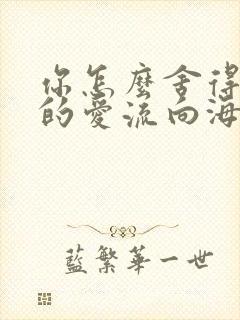 你怎麼舍得
的愛流向海
藍繁華一世